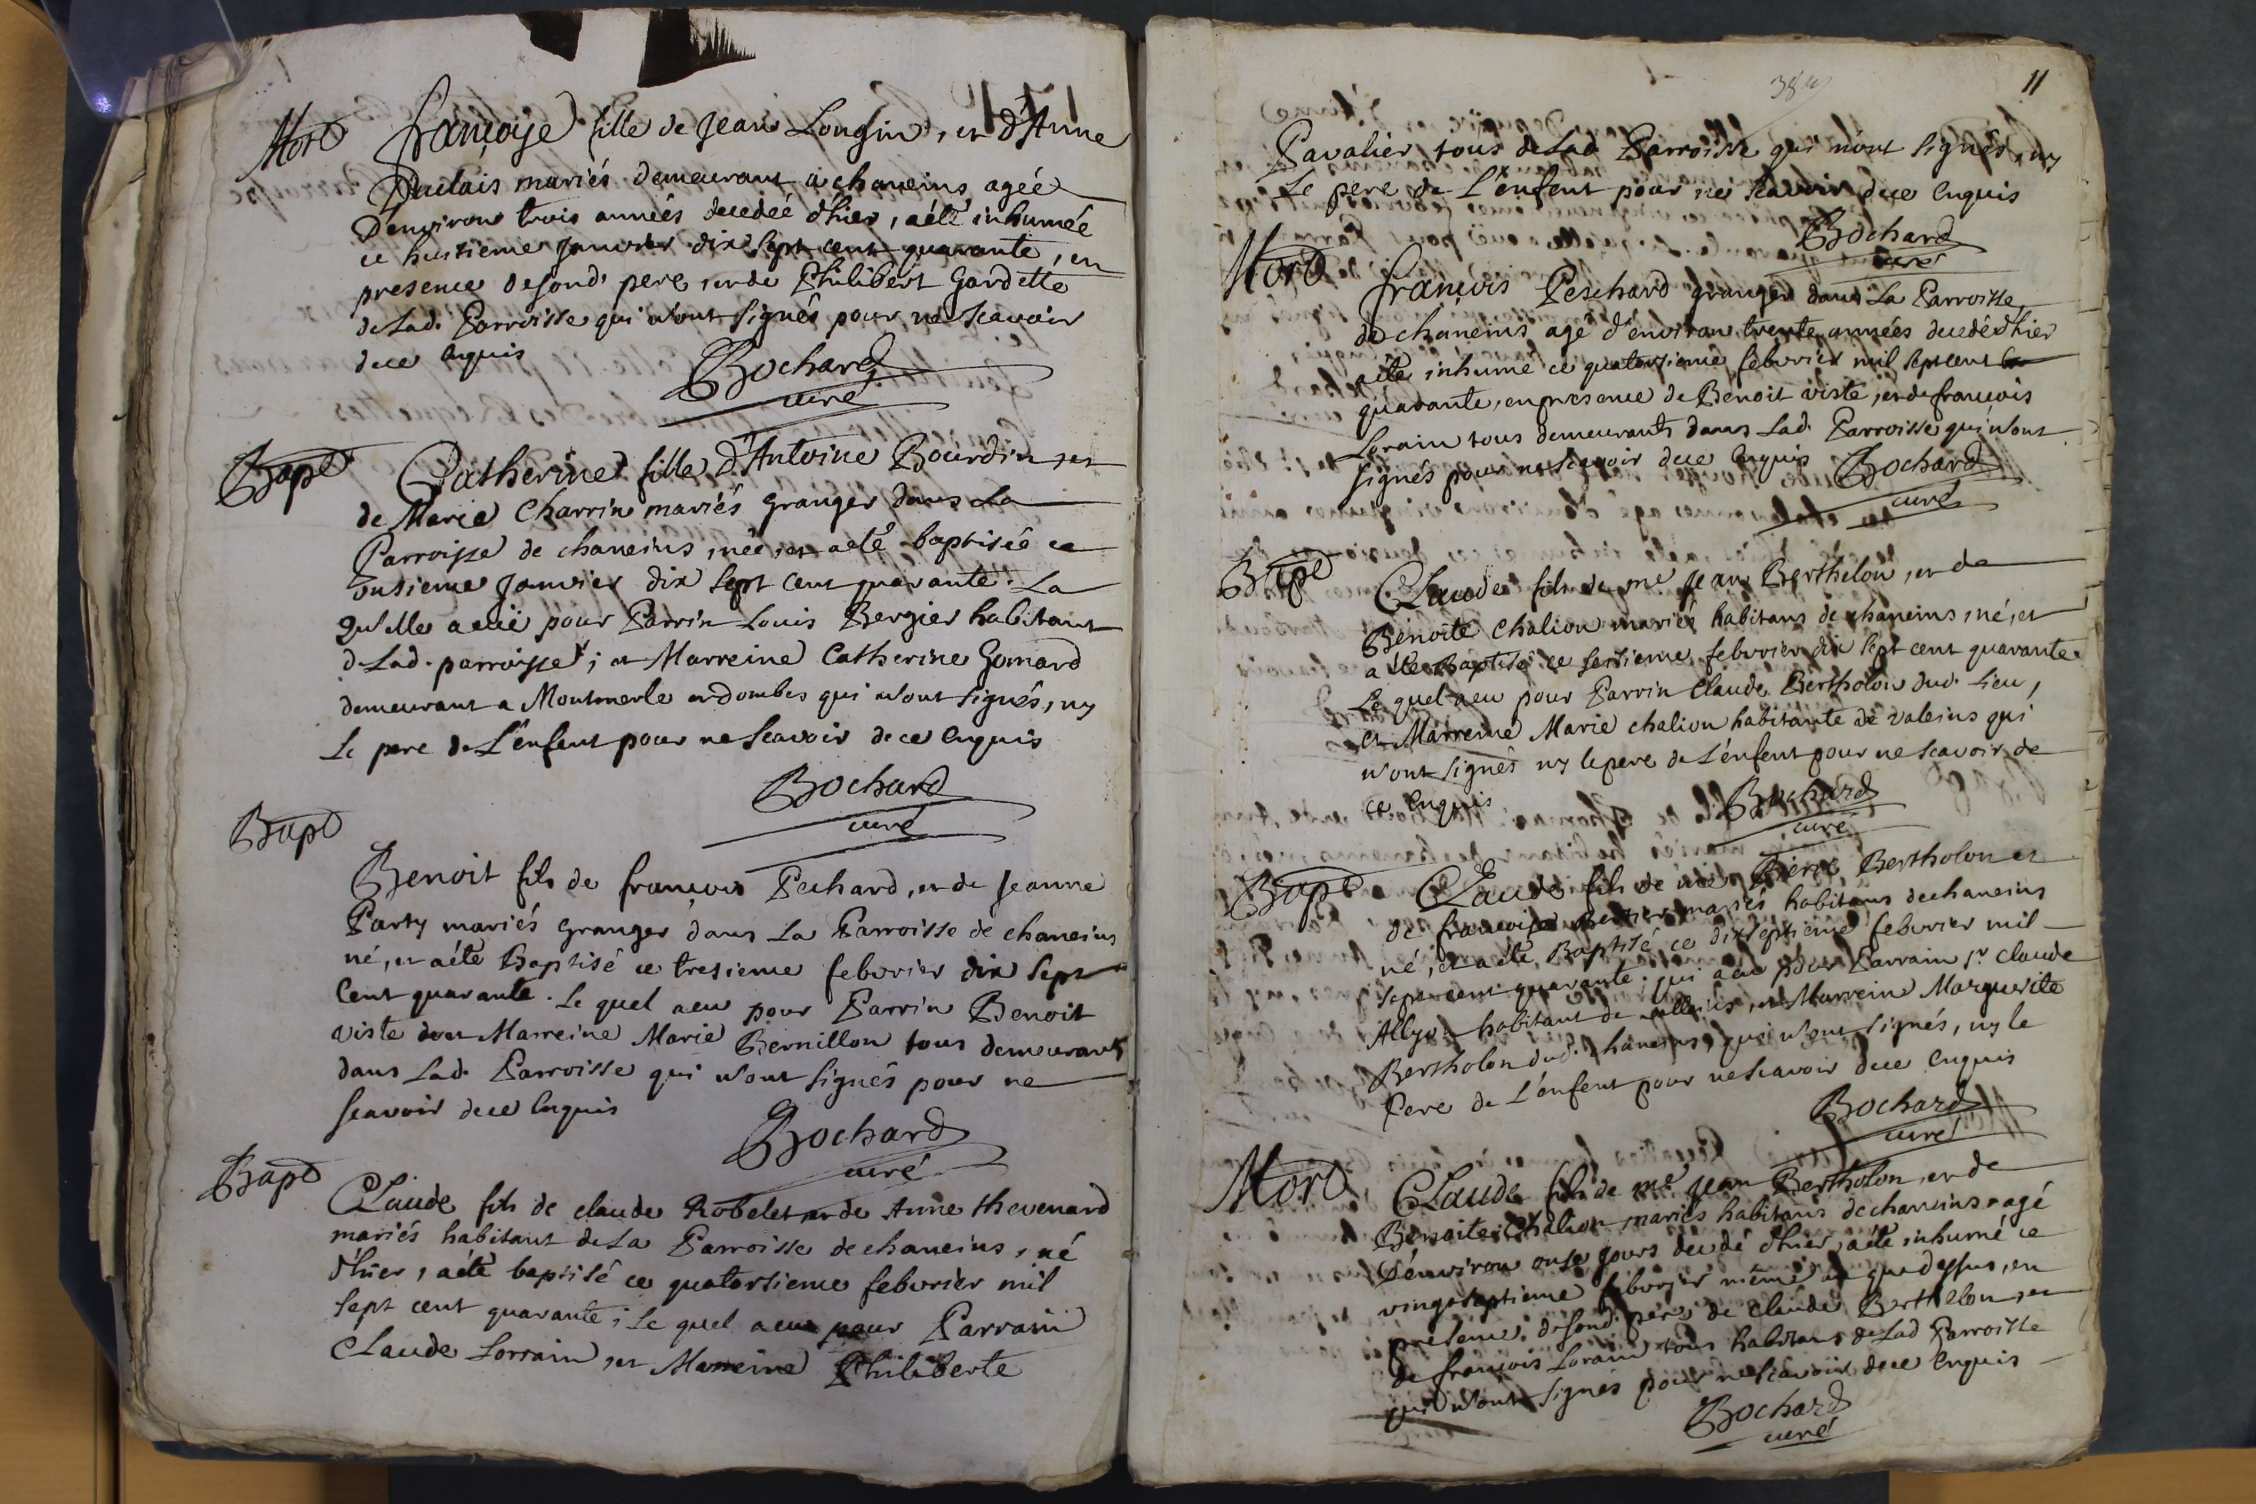 Mort françoise fille de Jean Longin, et d'Anne
Duclais mariés demeurant a chaneins agéé
d'environ trois années decedéé d'hier, a été inhuméé
ce huitieme Janvier dix sept cent quarante, en
presence de sond. pere, et de Philibert Gardette
de Lad. Parroisse qui n'ont signés pour ne scavoir
de ce enquis
Bochard
curé
Bapt Catherine fille d'Antoine Bourdin, et
de Marie Charrin mariés granger dans La
Parroisse de chaneins, néé, et a été baptiséé ce
onsieme Janvier dix sept cent quarante. La
qu'elle a eüe pour Parrin Louis Bergier habitant
de Lad. parroisse; et Marreine Catherine Gomard
demeurant a Montmerle en dombes qui n'ont signés, ny
Le pere de L'enfent pour ne scavoir de ce enquis
Bochard
curé
Bapt
Benoit fils de françois Pechard, et de Jeanne
Party mariés granger dans La Parroisse de chaneins
né, et a été Baptisé ce tresieme febvrier dix sept
cent quarante. Le quel a eu pour Parrin Benoit
viste et Marreine Marie Bernillon tous demeurants
dans Lad. Parroisse qui n'ont signés pour ne
scavoir de ce enquis
Bochard
curé
Bapt Claude fils de claude Robelet et de Anne thevenard
mariés habitant de La Parroisse de chaneins, né
d'hier, a été baptisé ce quatorsieme febvrier mil
sept cent quarante; Le quel a eu pour Parrain
Claude Lorrain, et Marreine Philiberte
11
Pavalier tous de Lad Parroisse qui n'ont signés, ny
Le pere de L'enfent pour ne scavoir de ce enquis
Bochard
curé
Mort françois Peschard granger dans La Parroisse
de chaneins agé d'environ trente années decedé d'hier
a été inhumé ce quatorsieme febvrier mil sept cent
quarante, en presence de Benoit viste, et de francois
Lorain tous demeurants dans Lad. Parroisse qui n'ont
signés pour ne scavoir de ce enquis
Bochard
curé
Bapt Claude fils de me Jean Berthelon, et de
Benoite Chalion mariés habitans de chaneins, né, et
a été Baptisé ce sesieme febvrier dix sept cent quarante.
Le quel a eu pour Parrin Claude Bertholon dud. Lieu,
et Marreine Marie chalion habitante de valeins qui
n'ont signés ny le pere de L'enfent pour ne scavoir de
ce enquis
Bochard
curé
Bapt Claude fils de me Pierre Bertholon et
de francoise mariés habitans de chaneins
né, et a été Baptisé ce dixseptieme febvrier mil
sept cent quarante; qui a eu pour Parrain sr claude
Allyon habitant de, et Marreine Marguerite
Bertholon dud. chaneins, qui n'ont signés, ny le
Pere de L'enfent pour ne scavoir de ce enquis
Bochard
curé
Mort Claude fils de me Jean Bertholon, et de
Benoite Chalion mariés habitans de chaneins agé
d'environ onse jours decedé d'hier, a été inhumé ce
vingt septieme febvrier même an que dessus, en
presence de sond. pere, de claude Berthelon, et
de françois Lorain tous habitans de Lad Parroisse
qui n'ont signés pour ne scavoir de ce enquis
Bochard
curé